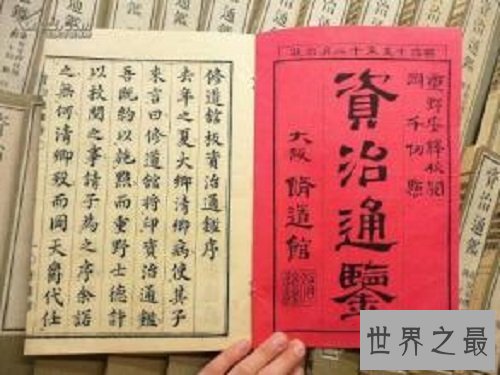 重野安繹校閱
岡千仞點
資治通鑒
大阪 脩道館
修道館板資治通鑑序
去年之夏大鄉清卿病使其子
來言曰修道館將印資治通鑑
吾既約以施點而重野士德計
以校閱之事請子為之序余諾
之無何清卿歿而岡天爵代任
資治通鑑
世界之最